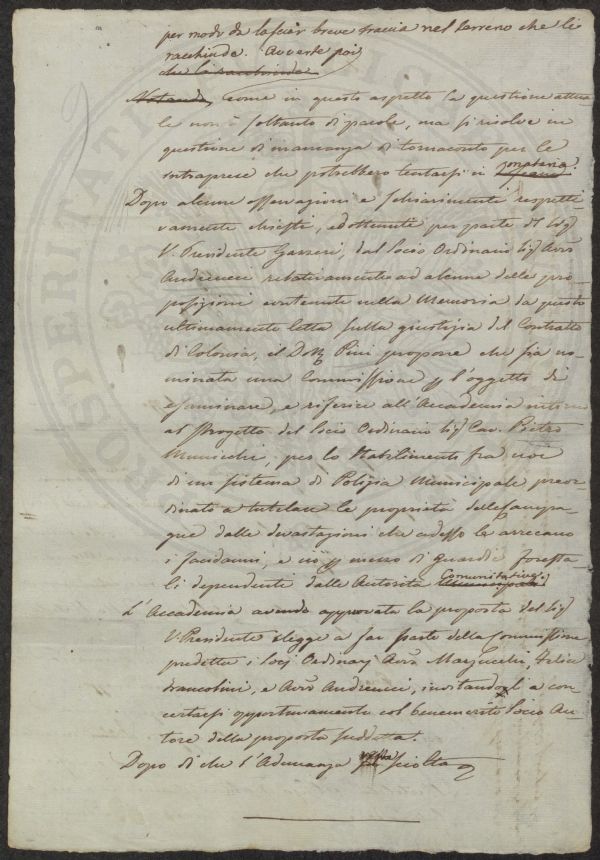 per modo da lasciar breve traccia nel terreno che li
racchiude. Avverte poi
che li racchiude
Notando, come in questo aspetto la questione attua
le non è soltanto di parole, ma si risolve in
questione di mancanza di tornaconto per le
intraprese che potrebbero tentarsi in materia
Dopo alcune osservazioni e schiarimenti respetti
vamente chiesti, ed ottenuti per parte del Sig.
V. Presidente Gazzeri, dal Socio Ordinario Sig. Avv.
Andreucci relativamente ad alcune delle pro
posizioni contenute nella Memoria da questo
ultimamente letta sulla giustizia del Contratto
di Colonia, il Dott. Pini propone che sia no
minata una Commissione p. l'oggetto di
esaminare, e riferire all'Accademia intorno
al Progetto del Socio Ordinario Sig. Cav. Pietro
Municchi, per lo stabilimento fra noi
di un sistema di Polizia Municipale preor
dinato a tutelare le proprietà delle Campa
gne dalle devastazioni che adesso le arrecano
i facidanni, e ciò p. mezzo di guardie foresta
li dipendenti dalle Autorità Comunitative.
L'Accademia avendo approvata la proposta del Sig.
V. Presidente elegge a far parte della Commissione
predetta i Socj Ordinarj Avv. Marzucchi, Felice
Francolini, e Avv. Andreucci, invitandogli a con
certarsi opportunamente col benemerito Socio Au
tore della proposta suddetta.
Dopo di che l'Adunanza resta sciolta
PROSPERITATI